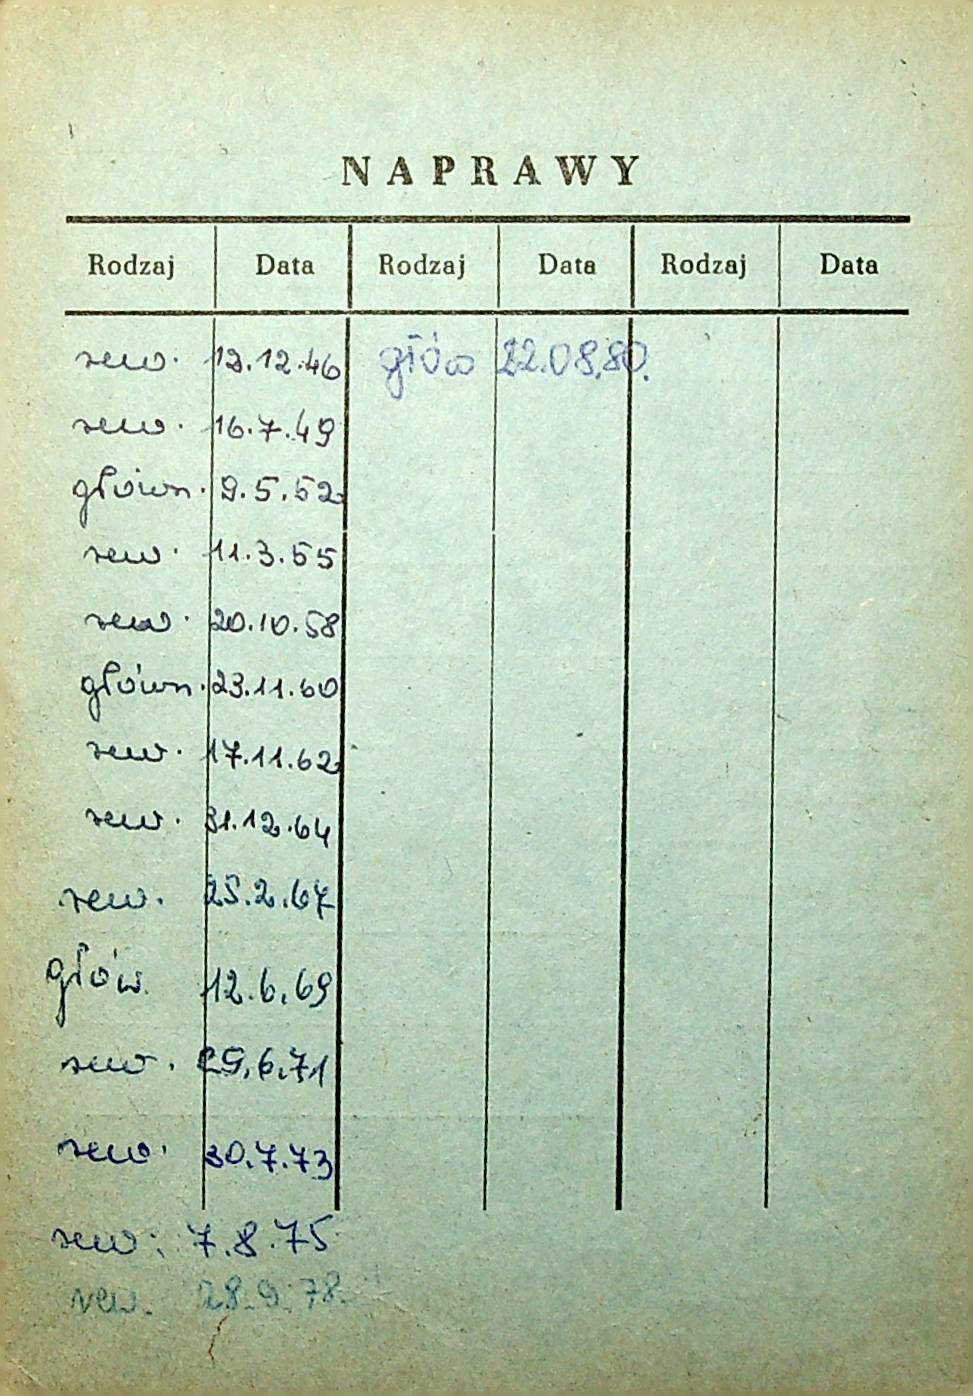 NAPRAWY
Rodzaj Data Rodzaj Data Rodzaj Data
rew. 12.12.46 głów 22.08.80.
rew. 16.7.49
główn. 9.5.52
rew. 11.3.55
rew. 20.10.58
główn. 23.11.60
rew. 17.11.62
rew. 31.12.64
rew. 25.2.67
głów. 12.6.69
rew. 29.6.71
rew. 30.7.73
rew. 7.8.75
rew. 28.9.78.